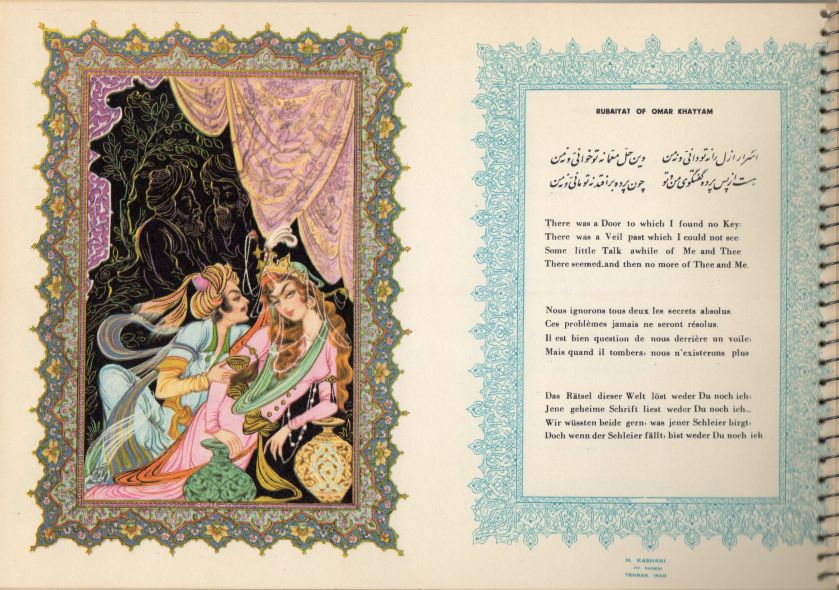 RUBAIYAT OF OMAR KHAYYAM
اسرار ازل را نه تو دانی و نه من وین حل معما نه تو خوانی و نه من
هست از پس پرده گفتگوی من و تو چون پرده برافتد نه تو مانی و نه من
There was a Door to which I found no Key:
There was a Veil past which I could not see
Some little Talk awhile of Me and Thee
There seemed_and then no more of Thee and Me.
Nous ignorons tous deux les secrets absolus.
Ces problèmes jamais ne seront résolus.
Il est bien question de nous derrière un voile;
Mais quand il tombera, nous n'existerons plus
Das Rätsel dieser Welt löst weder Du noch ich;
Jene geheime Schrift liest weder Du noch ich..
Wir wüssten beide gern, was jener Schleier birgt;
Doch wenn der Schleier fällt, bist weder Du noch ich.
H. KASHANI
TEHRAN, IRAN